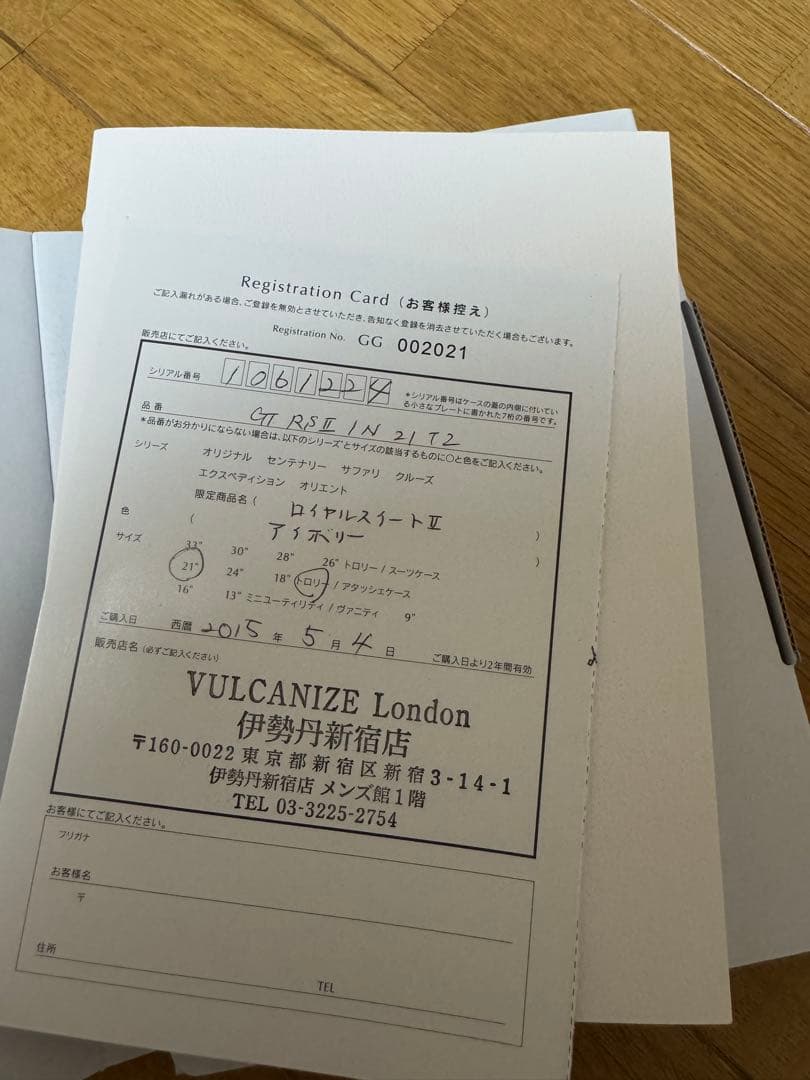 Registration Card (お客様控え)
ご記入漏れがある場合、ご登録を無効とさせていただき、告知なく登録を消去させていただく場合もございます。
Registration No. GG 002021
販売店にてご記入ください。
シリアル番号 1061224 *シリアル番号はケースの蓋の内側に付いている小さなプレートに書かれた7桁の番号です。
品番 GT RSⅡ IN 21T2
*品番がお分かりにならない場合は、以下のシリーズとサイズの該当するものに○と色をご記入ください。
シリーズ オリジナル センテナリー サファリ クルーズ
エクスペディション オリエント
限定商品名 ( ロイヤルスイートⅡ )
色 ( アイボリー )
サイズ 33" 30" 28" 26" トロリー / スーツケース
21" 24" 18" トロリー / アタッシェケース
16" 13" ミニユーティリティ / ヴァニティ 9"
ご購入日 西暦 2015 年 5 月 4 日 ご購入日より2年間有効
販売店名 (必ずご記入ください)
VULCANIZE London
伊勢丹新宿店
〒160-0022 東京都新宿区新宿3-14-1
伊勢丹新宿店 メンズ館1階
TEL 03-3225-2754
お客様にてご記入ください。
フリガナ
お客様名
〒
住所
TEL